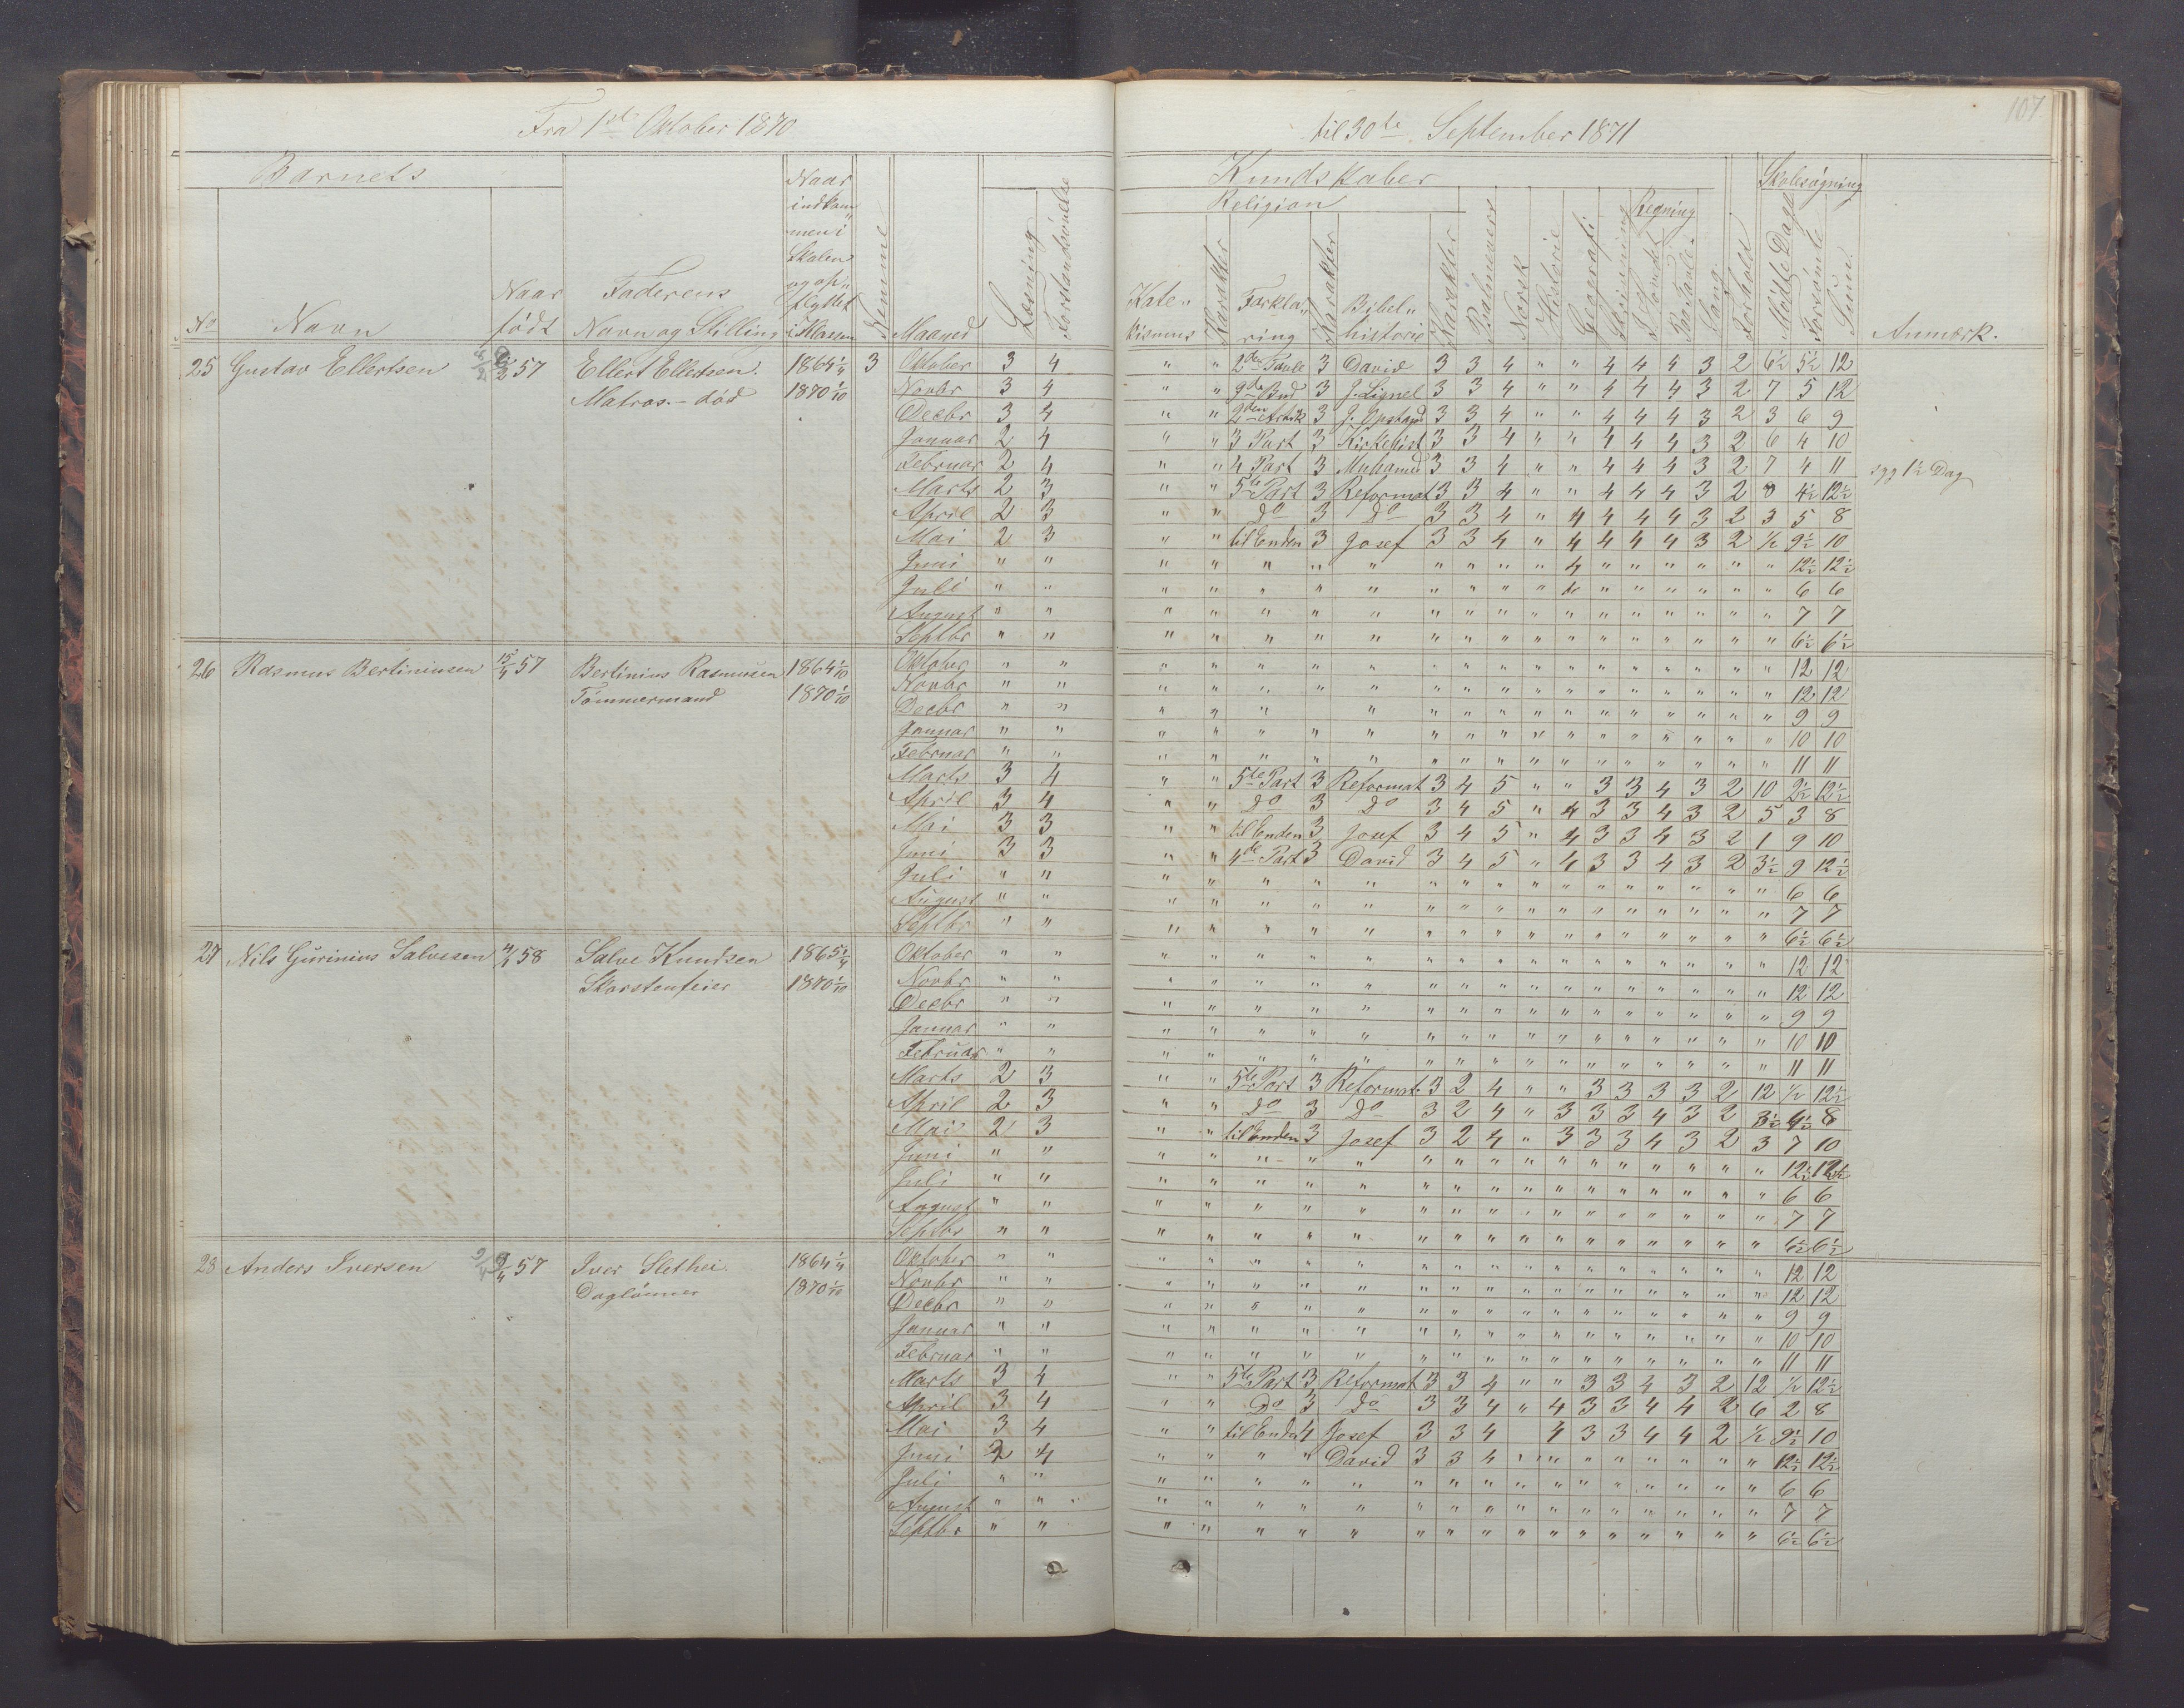 Fra 1ste Oktober 1870 til 30te September 1871
107
Barnets Naar indkommen i Skolen og opflyttet i Klassen Kundskaber Skolesøgning
Religion Regning
No Navn Naar født Faderens Navn og Stilling Nemme Maaned Læsning Forstandsøvelse Katekismus Karakter Forklaring Karakter Bibelhistorie Karakter Psalmevers Norsk Historie Geografi Skrivning Tavle Sang Forhold Mødte Dage Forsømte Sum Anmærk.
25 Gustav Ellertsen 8/2 57 Ellert Ellertsen. 1864 1/4 3 Oktober 3 4 " " 2den Tavle 3 David 3 3 4 " " 4 4 4 3 2 6½ 5½ 12
Matros. - død 1870 1/10 Novbr 3 4 " " 9de Bud 3 J. Lignel 3 3 4 " " 4 4 4 3 2 7 5 12
Decbr 3 4 " " 2den Artik 3 J. Opstand 3 3 4 " " 4 4 4 3 2 3 6 9
Januar 2 4 " " 3 Part 3 Kirkehist 3 3 4 " " 4 4 4 3 2 6 4 10
Februar 2 4 " " 4 Part 3 Muhamed 3 3 4 " " 4 4 4 3 2 7 4 11 syg 1½ Dag
Marts 2 3 " " 5te Part 3 Reformat 3 3 4 " " 4 4 4 3 2 8 4½ 12½
April 2 3 " " Do 3 Do 3 3 4 " 4 4 4 4 3 2 3 5 8
Mai 2 3 " " til Enden 3 Josef 3 3 4 " 4 4 4 4 3 2 ½ 9½ 10
Juni " " " " " " " " " " " 4 " " " " " " 12½ 12½
Juli " " " " " " " " " " " " " " " " " 6 6
August " " " " " " " " " " " " " " " " " " 7 7
Septbr " " " " " " " " " " " " " " " " " " 6½ 6½
26 Rasmus Bertiniusen 15/4 57 Bertinius Rasmusen 1864 1/10 Oktober " " " " " " " " " " " " " " " " " " 12 12
Tømmermand 1870 1/10 Novbr " " " " " " " " " " " " " " " " " " 12 12
Decbr " " " " " " " " " " " " " " " " " 9 9
Januar " " " " " " " " " " " " " " " " " " 10 10
Februar " " " " " " " " " " " " " " " " " " 11 11
Marts 3 4 " " 5te Part 3 Reformat 3 4 5 " " 3 3 4 3 2 10 2½ 12½
April 3 4 " " Do 3 Do 3 4 5 " 4 3 3 4 3 2 5 3 8
Mai 3 3 " " til Enden 3 Josef 3 4 5 " 4 3 3 4 3 2 1 9 10
Juni 3 3 " " 4de Part 3 David 3 4 5 " 4 3 3 4 3 2 3½ 9 12½
Juli " " " " " " " " " " " " " " " " " " 6 6
August " " " " " " " " " " " " " " " " " " 7 7
Septbr " " " " " " " " " " " " " " " " " " 6½ 6½
27 Nils Gurinius Salvesen 4/1 58 Salve Knudsen 1865 1/4 Oktober " " " " " " " " " " " " " " " " " " 12 12
Skorstenfeier 1870 1/10 Novbr " " " " " " " " " " " " " " " " " " 12 12
Decbr " " " " " " " " " " " " " " " " " " 9 9
Januar " " " " " " " " " " " " " " " " " " 10 10
Februar " " " " " " " " " " " " " " " " " " 11 11
Marts 2 3 " " 5te Part 3 Reformat 3 2 4 " " 3 3 3 3 2 12 ½ 12½
April 2 3 " " Do 3 Do 3 2 4 " 3 3 3 4 3 2 3½ 4½ 8
Mai 2 3 " " til Enden 3 Josef 3 2 4 " 3 3 3 4 3 2 3 7 10
Juni " " " " " " " " " " " " " " " " " " 12½ 12½
Juli " " " " " " " " " " " " " " " " " " 6 6
August " " " " " " " " " " " " " " " " " " 7 7
Septbr " " " " " " " " " " " " " " " " " " 6½ 6½
28 Anders Iversen 9/4 57 Iver Slethei. 1864 1/4 Oktober " " " " " " " " " " " " " " " " " " 12 12
Daglønner 1870 1/10 Novbr " " " " " " " " " " " " " " " " " " 12 12
Decbr " " " " " " " " " " " " " " " " " " 9 9
Januar " " " " " " " " " " " " " " " " " " 10 10
Februar " " " " " " " " " " " " " " " " " " 11 11
Marts 3 4 " " 5te Part 3 Reformat 3 3 4 " " 3 3 4 3 2 12 ½ 12½
April 3 4 " " Do 3 Do 3 3 4 " 4 3 3 4 4 2 6 2 8
Mai 3 4 " " til Enden 4 Josef 3 3 4 4 3 3 4 4 2 ½ 9½ 10
Juni 2 4 " " " " David 3 3 4 " " " " " " " " 12½ 12½
Juli " " " " " " " " " " " " " " " " " " 6 6
August " " " " " " " " " " " " " " " " " " 7 7
Septbr " " " " " " " " " " " " " " " " " " 6½ 6½